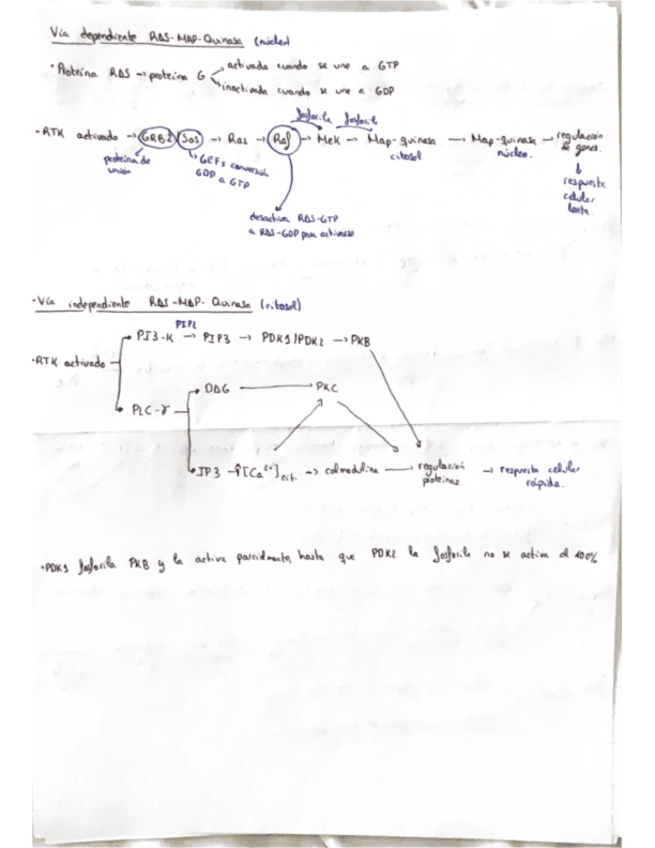 Vía dependiente RAS-MAP-Quinasa (núcleo)
· Proteína RAS → proteína G
activada cuando se une a GTP
inactivada cuando se une a GDP
fosforila fosforila
· RTK activado → GRB2/SOS → Ras → Raf → Mek → Map-quinasa → Map-quinasa → regulación de genes.
citosol
núcleo.
proteína de unión
GEFs conversión GDP a GTP
respuesta celular lenta.
desactiva RAS-GTP
a RAS-GDP para
· Vía independiente RAS-MAP-Quinasa (citosol)
PIP2
PI3-K → PIP3 → PDK1/PDK2 → PKB
· RTK activado
DAG → PKC
PLC-γ
IP3 → ↑[Ca²⁺]cit. → calmodulina → regulación proteínas. → respuesta celular rápida.
· PDK1 fosforila PKB y la activa parcialmente, hasta que PDK2 la fosforila no se activa al 100%